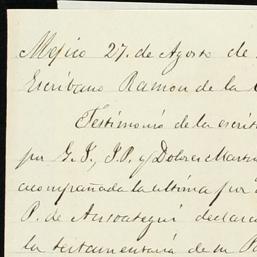 Mejico 27. de Agosto de
Escribano Ramon de la
Testimonio de la escrit
por G. F., J. P. y Dolores Marti
acompañada la ultima por
P. de Ansoategui declara
la testamentaria de su P